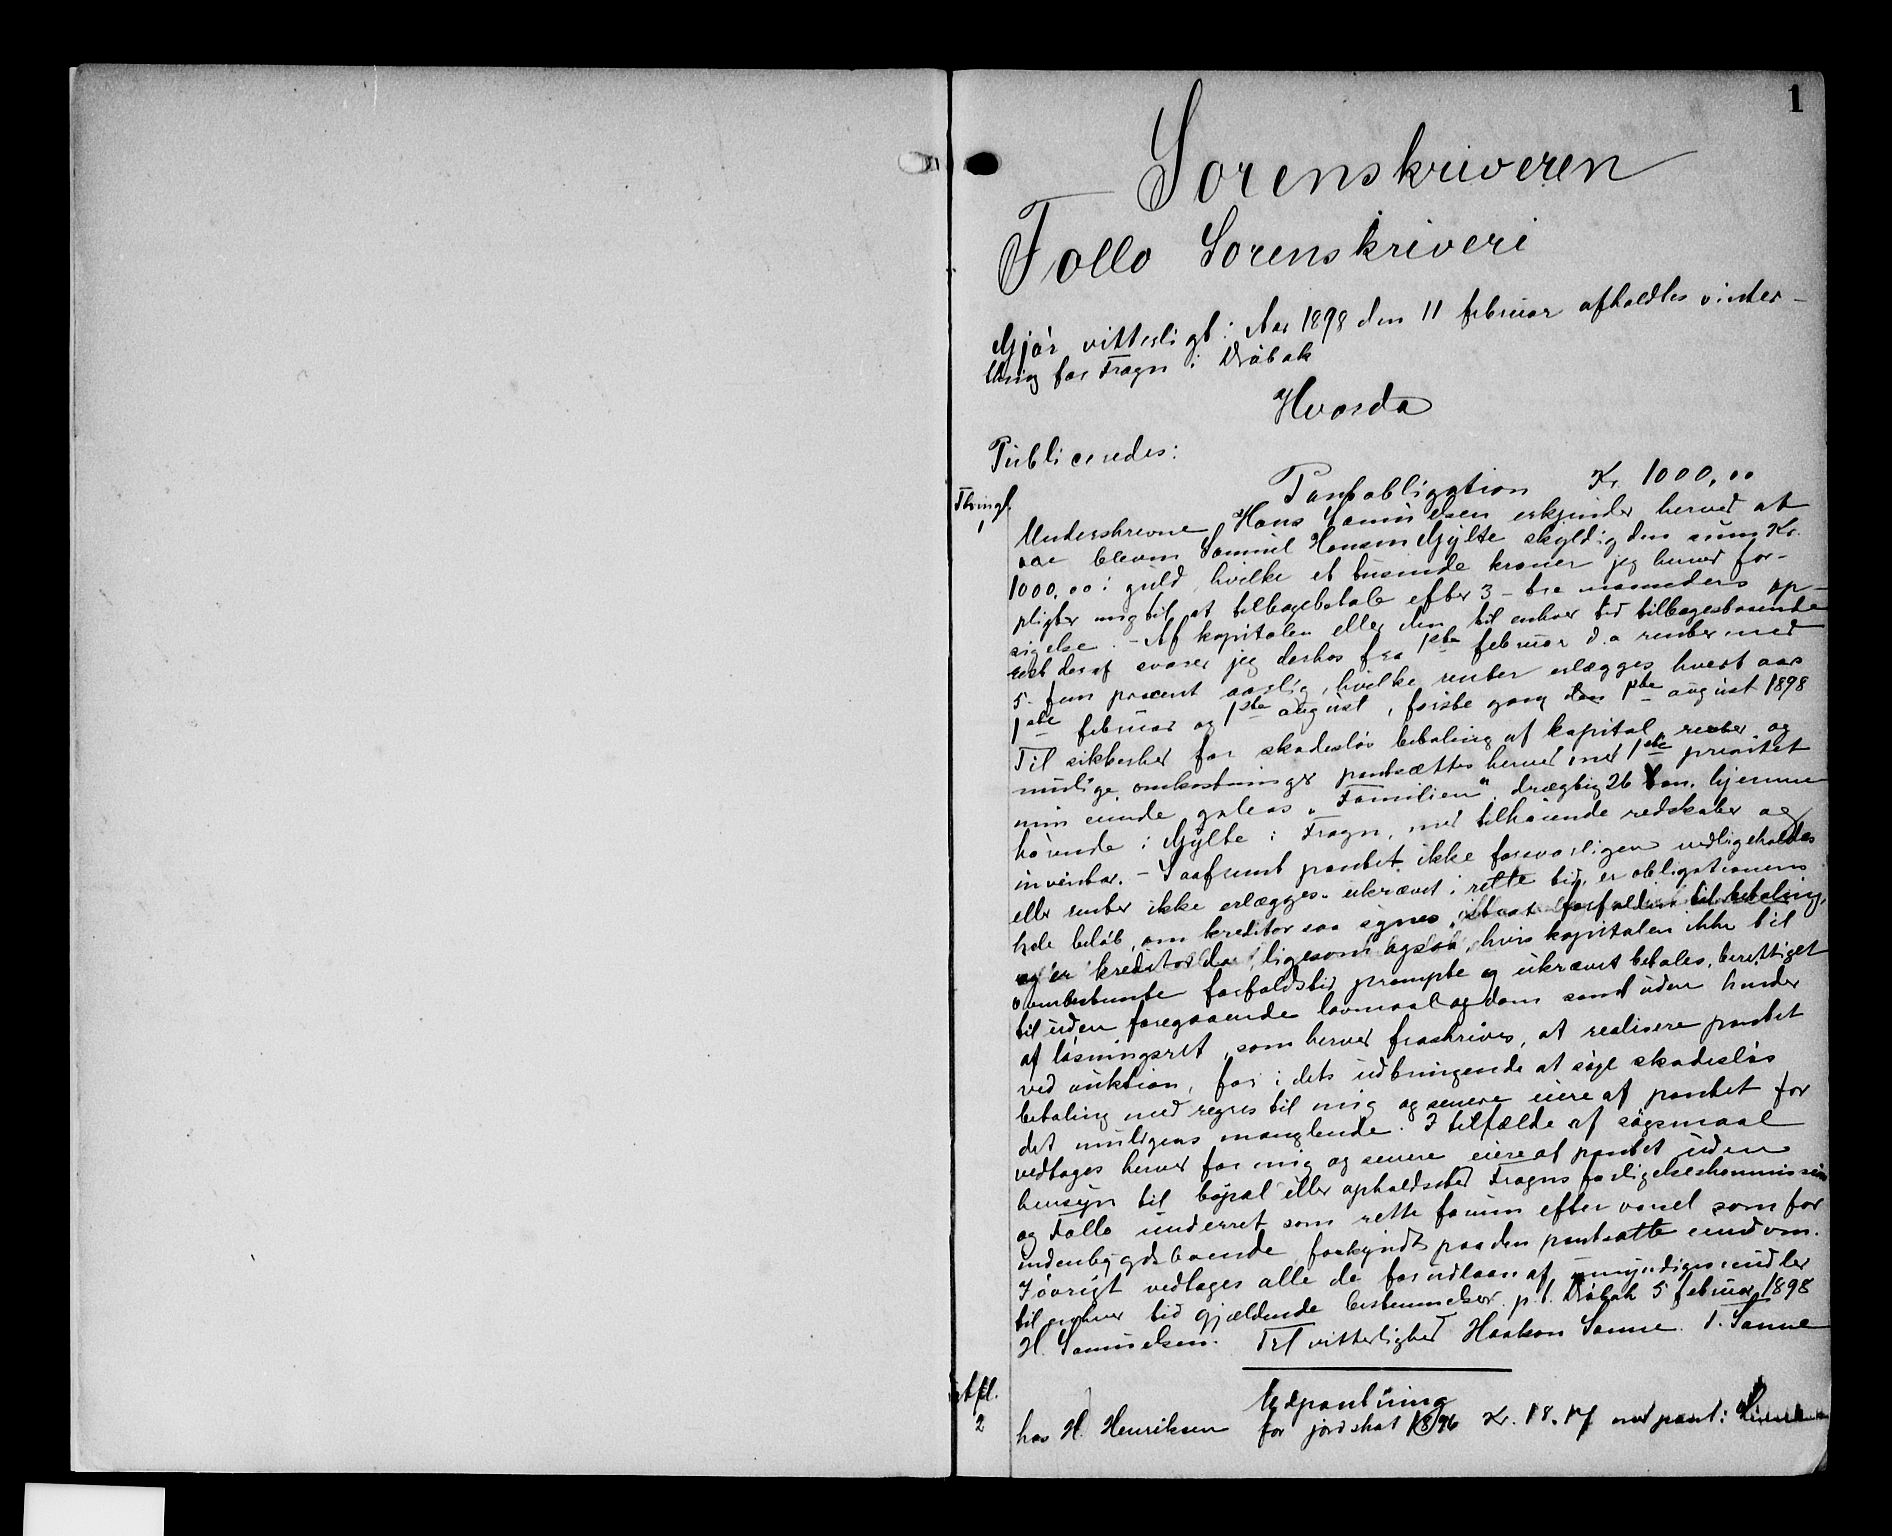 1
Sorenskriveren
Follo Sorenskriveri
Gjör vitterligt: Aar 1898 den 11 februar afholdtes vinter-
thing for Fragn i Dröbak
Hvorda
Publiceredes:
Pantobligation Kr. 1000,00
Thingl.
1
Underskrevne Hans Samuelsen erkjender herved at
være bleven Samuel Hansen Gylte skyldig den sum Kr.
1000,00 i guld, hvilke et tusinde kroner jeg herved for-
pligter mig til at tilbagebetale efter 3 - tre maaneders op-
sigelse. - Af kapitalen eller den til enhver tid tilbagestaaende
rest deraf svarer jeg derhos fra 1ste februar d.a renter med
5 - fem procent aarlig, hvilke renter erlægges hvert aars
1ste februar og 1ste august, förste gang den 1ste august 1898
Til sikkerhed for skadeslös betaling af kapital, renter og
mulige omkostninger pantsættes herved med 1ste prioritet
min eiende galeas "Familien" drægtig 26 ton, hjemme
hörende i Gylte i Fragn, med tilhörende redskaber og
inventar. - Saafremt pantet ikke forsvarligen vedligeholdes
eller renter ikke erlægges ukrævet i rette tid, er obligationens
hele belöb, om kreditor saa synes, straks forfalden til betaling,
og er kreditor da, ligesom ogsaa hvis kapitalen ikke til
ovenbestemte forfaldstid prompte og ukrævet betales, berettiget
til uden foregaaende lovmaal og dom samt uden hinder
af lösningsret, som herved fraskrives, at realisere pantet
ved auktion, for i dets udbringende at söge skadeslös
betaling med regres til mig og senere eiere af pantet for
det muligens manglende. I tilfælde af sögsmaal
vedtages herved for mig og senere eiere af pantet uden
hensyn til bopæl eller opholdssted Fragns forligelseskommission
og Follo underret som rette forum efter varsel som for
indenbygdsboende, forkyndt paa den pantsatte eiendom.
Iövrigt vedtages alle de for udlaan af umyndiges midler
til enhver tid gjældende bestemmelser. p.t. Dröbak 5 februar 1898
H. Samuelsen. Til vitterlighed Haakon Sanne. T. Sanne
Utpantning
2
hos H. Henriksen for jordskat 1896 Kr. 18.17 med pant i